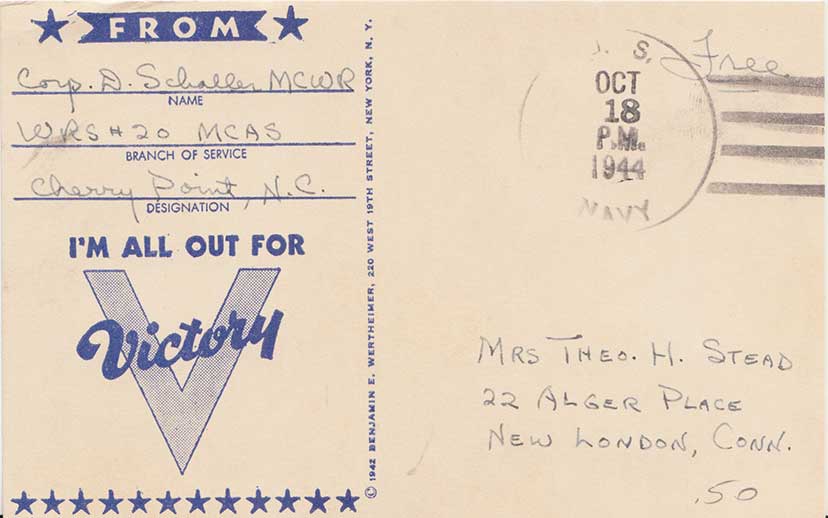 FROM
Corp. D. Schaller MCWR
NAME
WRS#20 MCAS
BRANCH OF SERVICE
Cherry Point, N.C.
DESIGNATION
I'M ALL OUT FOR
Victory
© 1942 BENJAMIN E. WERTHEIMER, 220 WEST 19TH STREET, NEW YORK, N. Y.
S.
OCT
18
P.M.
1944
NAVY
Free
MRS THEO. H. STEAD
22 ALGER PLACE
NEW LONDON, CONN.
.50